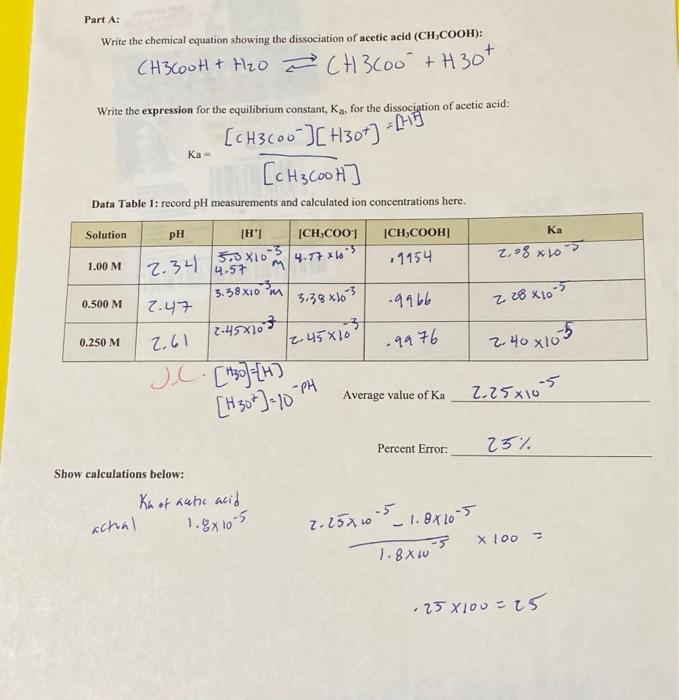 Part A:
Write the chemical equation showing the dissociation of acetic acid (CH₃COOH):
CH3COOH + H2O ⇌ CH3COO⁻ + H3O⁺
Write the expression for the equilibrium constant, Kₐ, for the dissociation of acetic acid:
[CH3COO⁻][H3O⁺] =
Ka =
[CH3COOH]
Data Table 1: record pH measurements and calculated ion concentrations here.
Solution pH [H⁺] [CH₃COO⁻] [CH₃COOH] Ka
1.00 M 2.34 5.0 x10⁻³ M 4.57 4.57 x10⁻³ .9954 2.08 x10⁻⁵
0.500 M 2.47 3.38 x10⁻³ M 3.38 x10⁻³ .9966 2.28 x10⁻⁵
0.250 M 2.61 2.45 x10⁻³ 2.45 x10⁻³ .9976 2.40 x10⁻⁵
[H3O]=[H]
[H3O⁺]=10⁻ᵖᴴ
Average value of Ka 2.25 x10⁻⁵
Percent Error: 25%
Show calculations below:
Ka of acetic acid
actual 1.8 x 10⁻⁵
2.25 x 10⁻⁵ - 1.8 x 10⁻⁵
1.8 x 10⁻⁵
x 100 =
.25 x 100 = 25